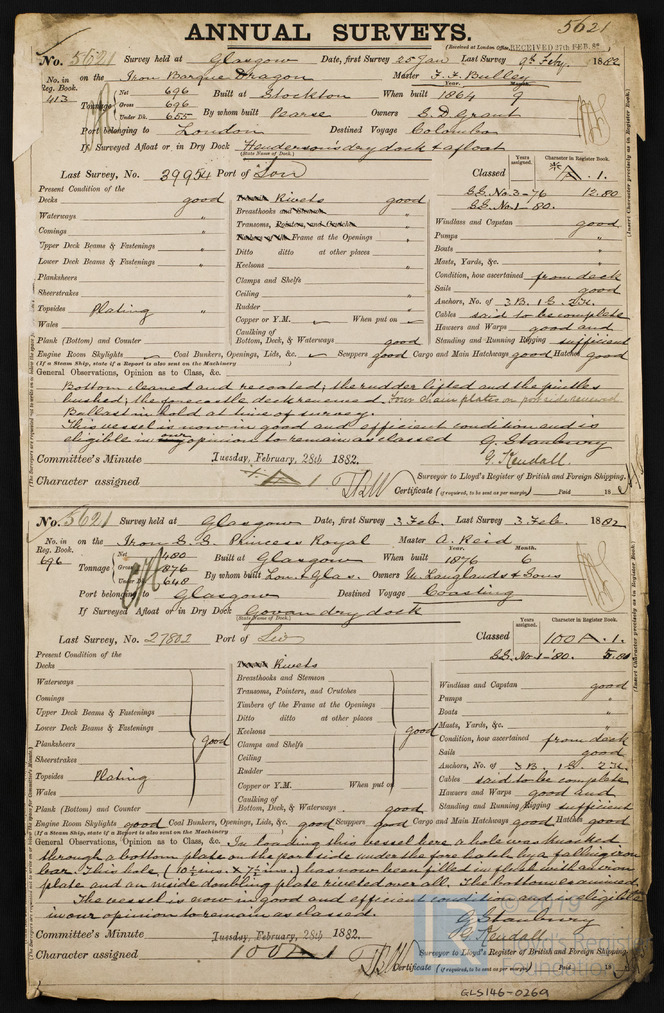 5621
ANNUAL SURVEYS.
(Received at London Office, RECEIVED 27th FEB. 82
No. 5621 Survey held at Glasgow Date, first Survey 25 Jan Last Survey 9th Feby. 1882
No. in Reg. Book. 413 on the Iron Barque Dragon Master F. F. Bulley
Tonnage Net 696 Gross 696 Under Dk. 655 Built at Stockton When built Year. 1864 Month. 9
By whom built Pearse Owners E. D. Grant
Port belonging to London Destined Voyage Colombo
If Surveyed Afloat or in Dry Dock Hendersons dry dock & afloat
(State Name of Dock.)
Last Survey, No. 39954 Port of Lon Classed Years assigned. Character in Register Book. A. 1.
S.S. No. 3-76 12.80
S.S. No. 1-80.
Present Condition of the
Decks good
Waterways "
Comings "
Upper Deck Beams & Fastenings "
Lower Deck Beams & Fastenings "
Planksheers
Sheerstrakes
Topsides Plating "
Wales
Plank (Bottom) and Counter
Rivets good
Breasthooks "
Transoms, "
Frame at the Openings "
Ditto ditto at other places "
Keelsons "
Clamps and Shelfs
Ceiling "
Rudder "
Copper or Y.M. When put on
Caulking of Bottom, Deck, & Waterways good
Windlass and Capstan good
Pumps "
Boats "
Masts, Yards, &c. "
Condition, how ascertained from deck
Sails good
Anchors, No. of 3 B. 1 S. 2 K.
Cables said to be complete
Hausers and Warps good and
Standing and Running Rigging sufficient
Engine Room Skylights Coal Bunkers, Openings, Lids, &c. Scuppers good Cargo and Main Hatchways good Hatches good
(If a Steam Ship, state if a Report is also sent on the Machinery )
General Observations, Opinion as to Class, &c.
Bottom cleaned and recoated; the rudder lifted and the pintles
bushed; the forecastle deck renewed. Four chain plates on port side renewed
Ballast in hold at time of survey.
This vessel is now in good and efficient condition and is
eligible in our opinion to remain as classed G. Stanbury
G. Kendall.
Committee's Minute Tuesday, February, 28th 1882.
Character assigned A 1
Surveyor to Lloyd's Register of British and Foreign Shipping.
Certificate (if required, to be sent as per margin) Paid 18
(Insert Character precisely as in Register Book.)
No. 5621 Survey held at Glasgow Date, first Survey 3 Feb. Last Survey 3 Feb. 1882
No. in Reg. Book. 696 on the Iron S.S. Princess Royal Master A. Reid
Tonnage Net 480 Gross 876 Under Dk. 648 Built at Glasgow When built Year. 1876 Month. 6
By whom built Lon. & Glas. Owners M. Langlands & Sons
Port belonging to Glasgow Destined Voyage Coasting
If Surveyed Afloat or in Dry Dock Govan dry dock
(State Name of Dock.)
Last Survey, No. 27802 Port of Classed Years assigned. Character in Register Book. 100 A. 1.
S.S. No. 1-'80.
Present Condition of the
Decks
Waterways
Comings
Upper Deck Beams & Fastenings
Lower Deck Beams & Fastenings
Planksheers good
Sheerstrakes
Topsides Plating
Wales
Plank (Bottom) and Counter
Rivets
Breasthooks and Stemson
Transoms, Pointers, and Crutches
Timbers of the Frame at the Openings
Ditto ditto at other places
Keelsons good
Clamps and Shelfs
Ceiling
Rudder
Copper or Y.M. When put on
Caulking of Bottom, Deck, & Waterways good
Windlass and Capstan good
Pumps "
Boats "
Masts, Yards, &c. "
Condition, how ascertained from deck
Sails good
Anchors, No. of 3 B. 1 S. 2 K.
Cables said to be complete
Hausers and Warps good and
Standing and Running Rigging sufficient
Engine Room Skylights good Coal Bunkers, Openings, Lids, &c. good Scuppers good Cargo and Main Hatchways good Hatches good
(If a Steam Ship, state if a Report is also sent on the Machinery )
General Observations, Opinion as to Class, &c. In loading this vessel here a hole was knocked
through a bottom plate on the port side under the fore hatch by a falling iron
bar. This hole, (10½ins. x 7½ins.) has now been filled in flush with an iron
plate and an inside doubling plate riveted over all. The bottom examined.
The vessel is now in good and efficient condition and is eligible
in our opinion to remain as classed. G. Stanbury
G. Kendall
Committee's Minute Tuesday, February, 28th 1882.
Character assigned 100 A 1
Surveyor to Lloyd's Register of British and Foreign Shipping.
Certificate (if required, to be sent as per margin) Paid 18
(Insert Character precisely as in Register Book.)
© 2019
Lloyd's Register
Foundation
GLS146-0269